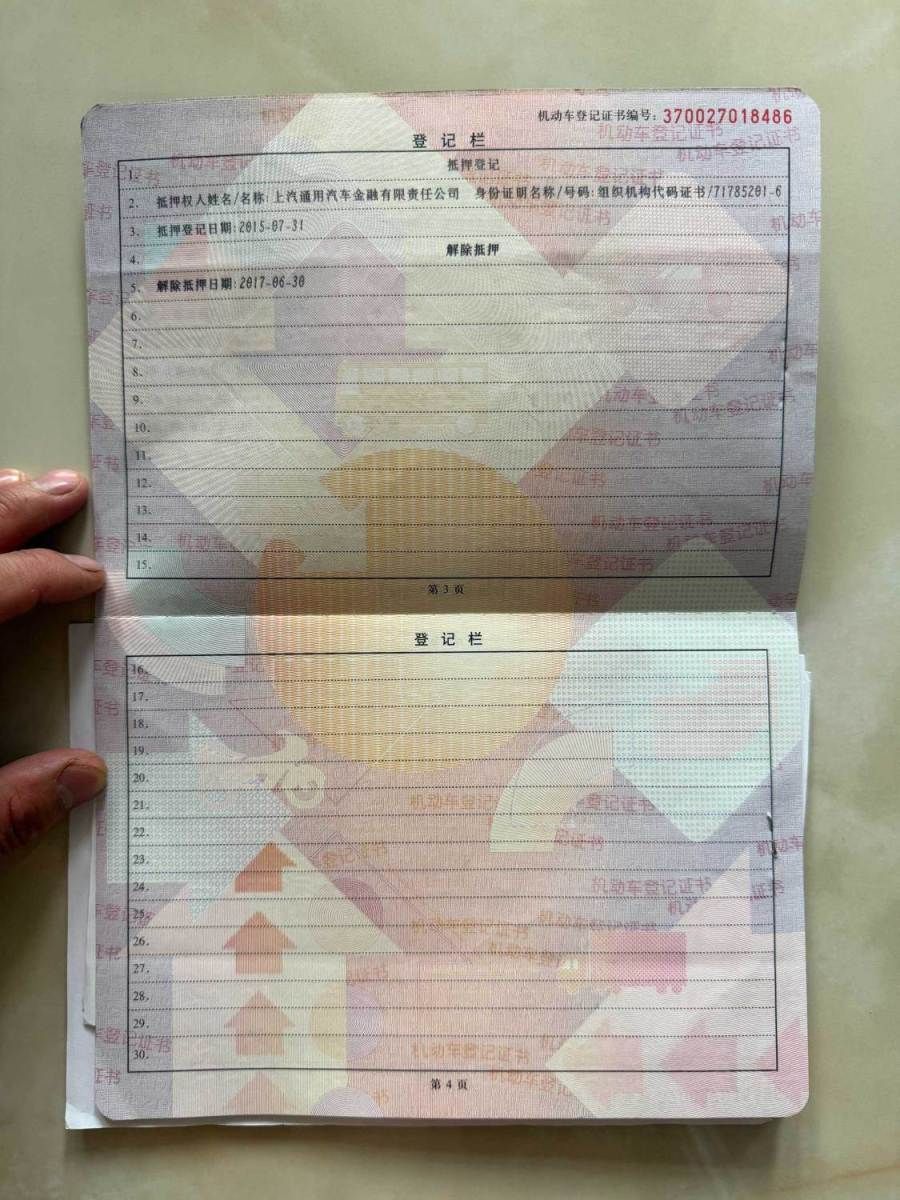 机动车登记证书编号：370027018486
登 记 栏
1. 抵押登记
2. 抵押权人姓名/名称:上汽通用汽车金融有限责任公司 身份证明名称/号码:组织机构代码证书/71785201-6
3. 抵押登记日期:2015-07-31
4. 解除抵押
5. 解除抵押日期:2017-06-30
6.
7.
8.
9.
10.
11.
12.
13.
14.
15.
第 3 页
登 记 栏
16.
17.
18.
19.
20.
21.
22.
23.
24.
25.
26.
27.
28.
29.
30.
第 4 页